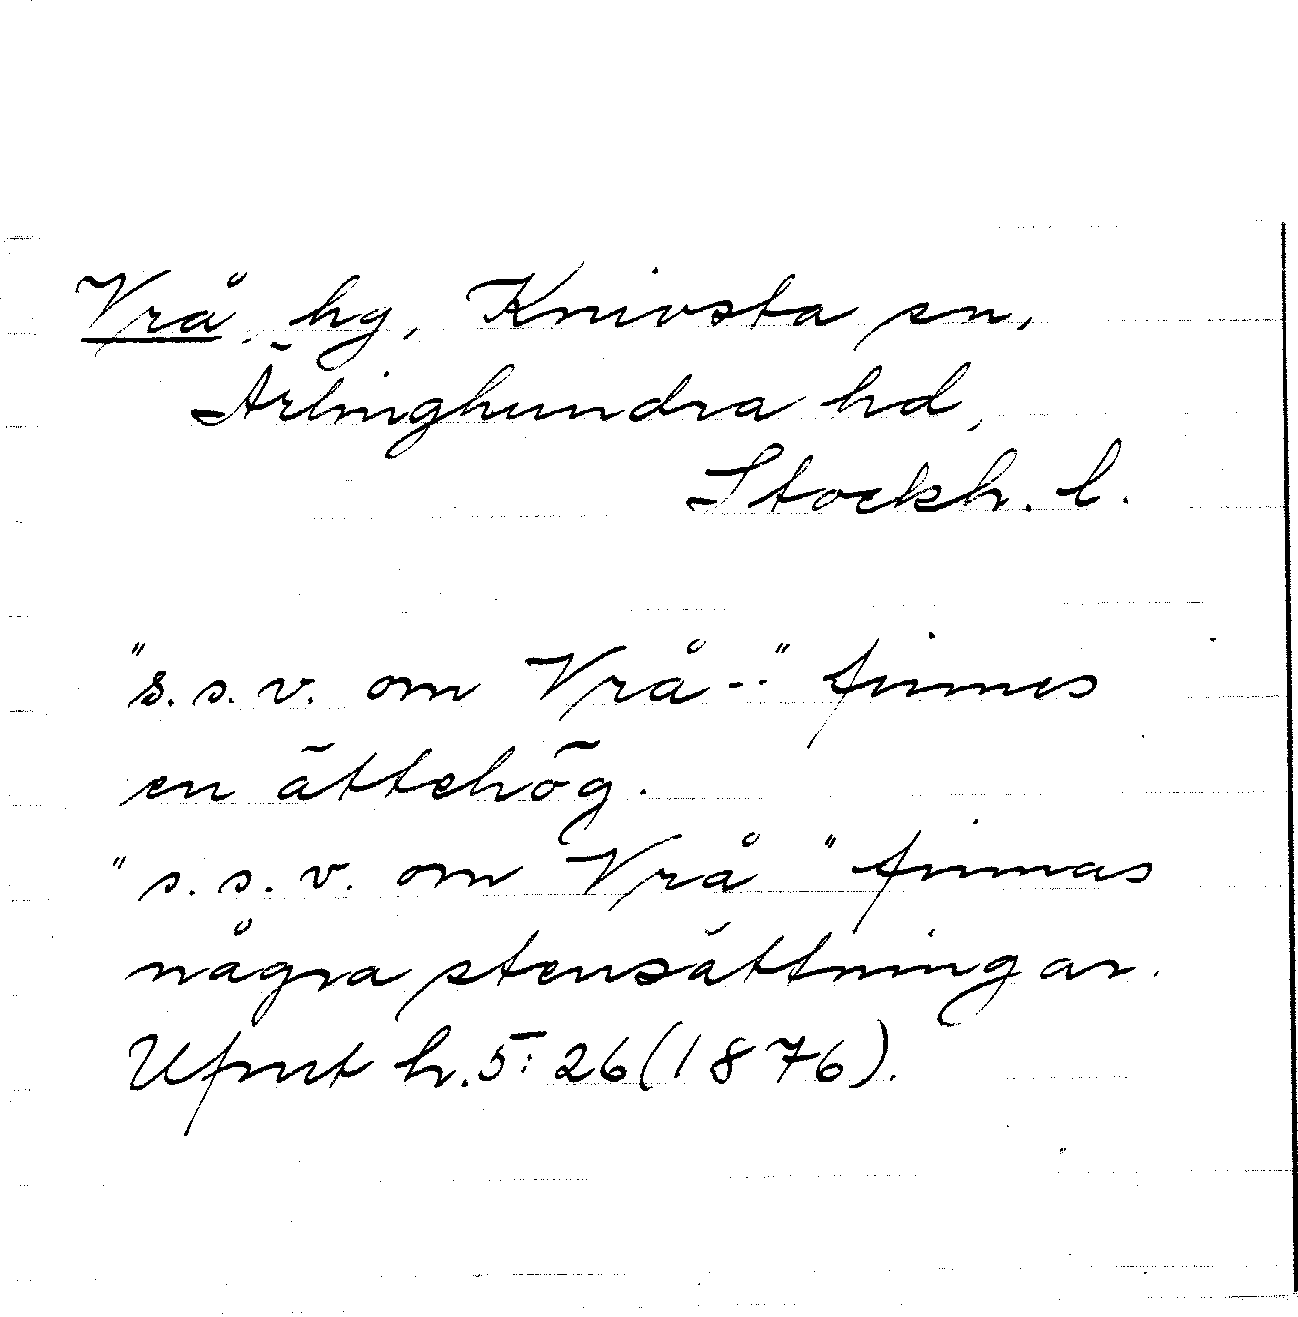 Vrå, hg, Knivsta sn,
Ärlinghundra hd,
Stockh. l.
"s.s.v. om Vrå -.." finnes
en ättehög.
"s.s.v. om Vrå" finnas
några stensättningar.
Ufmt h.5:26(1876).